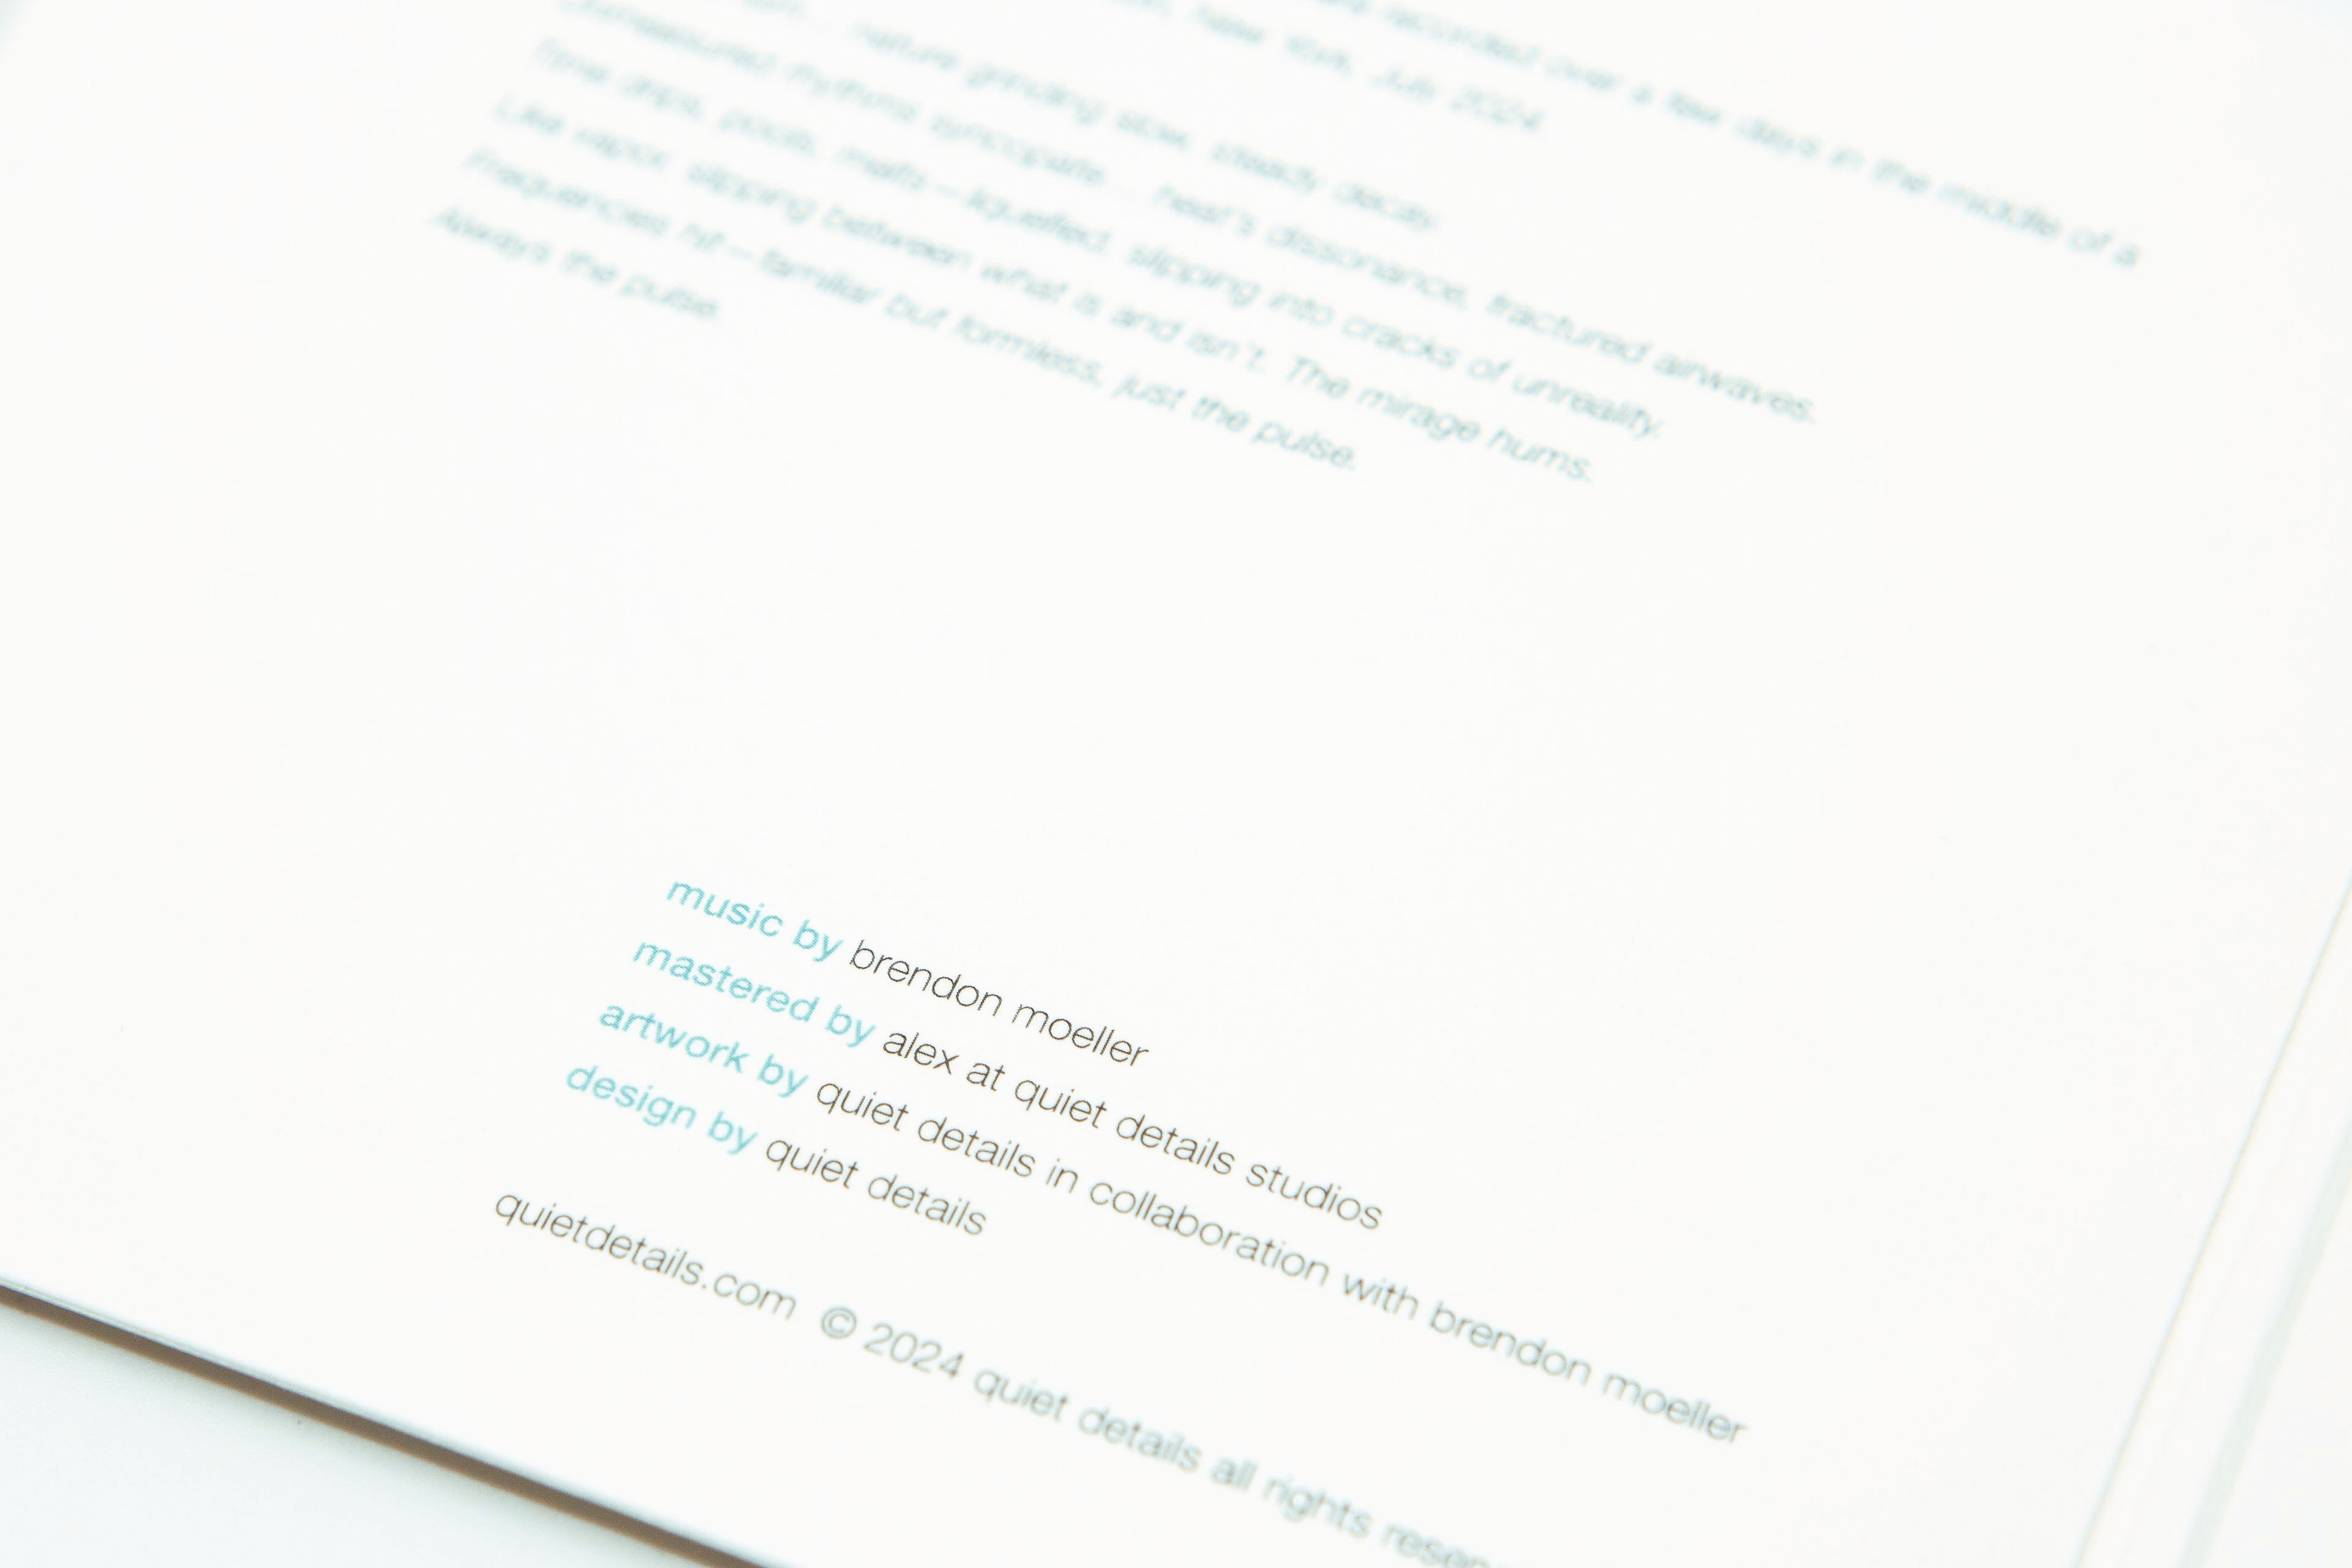 recorded over a few days in the middle of a
New York, July 2024.
nature grinding slow, steady decay.
Unmeasured rhythms syncopate... heat's dissonance, fractured airwaves.
Time drips, pools, melts – liquefied, slipping into cracks of unreality.
Like vapor, slipping between what is and isn't. The mirage hums.
Frequencies hit – familiar but formless, just the pulse.
Always the pulse.
music by brendon moeller
mastered by alex at quiet details studios
artwork by quiet details in collaboration with brendon moeller
design by quiet details
quietdetails.com © 2024 quiet details all rights